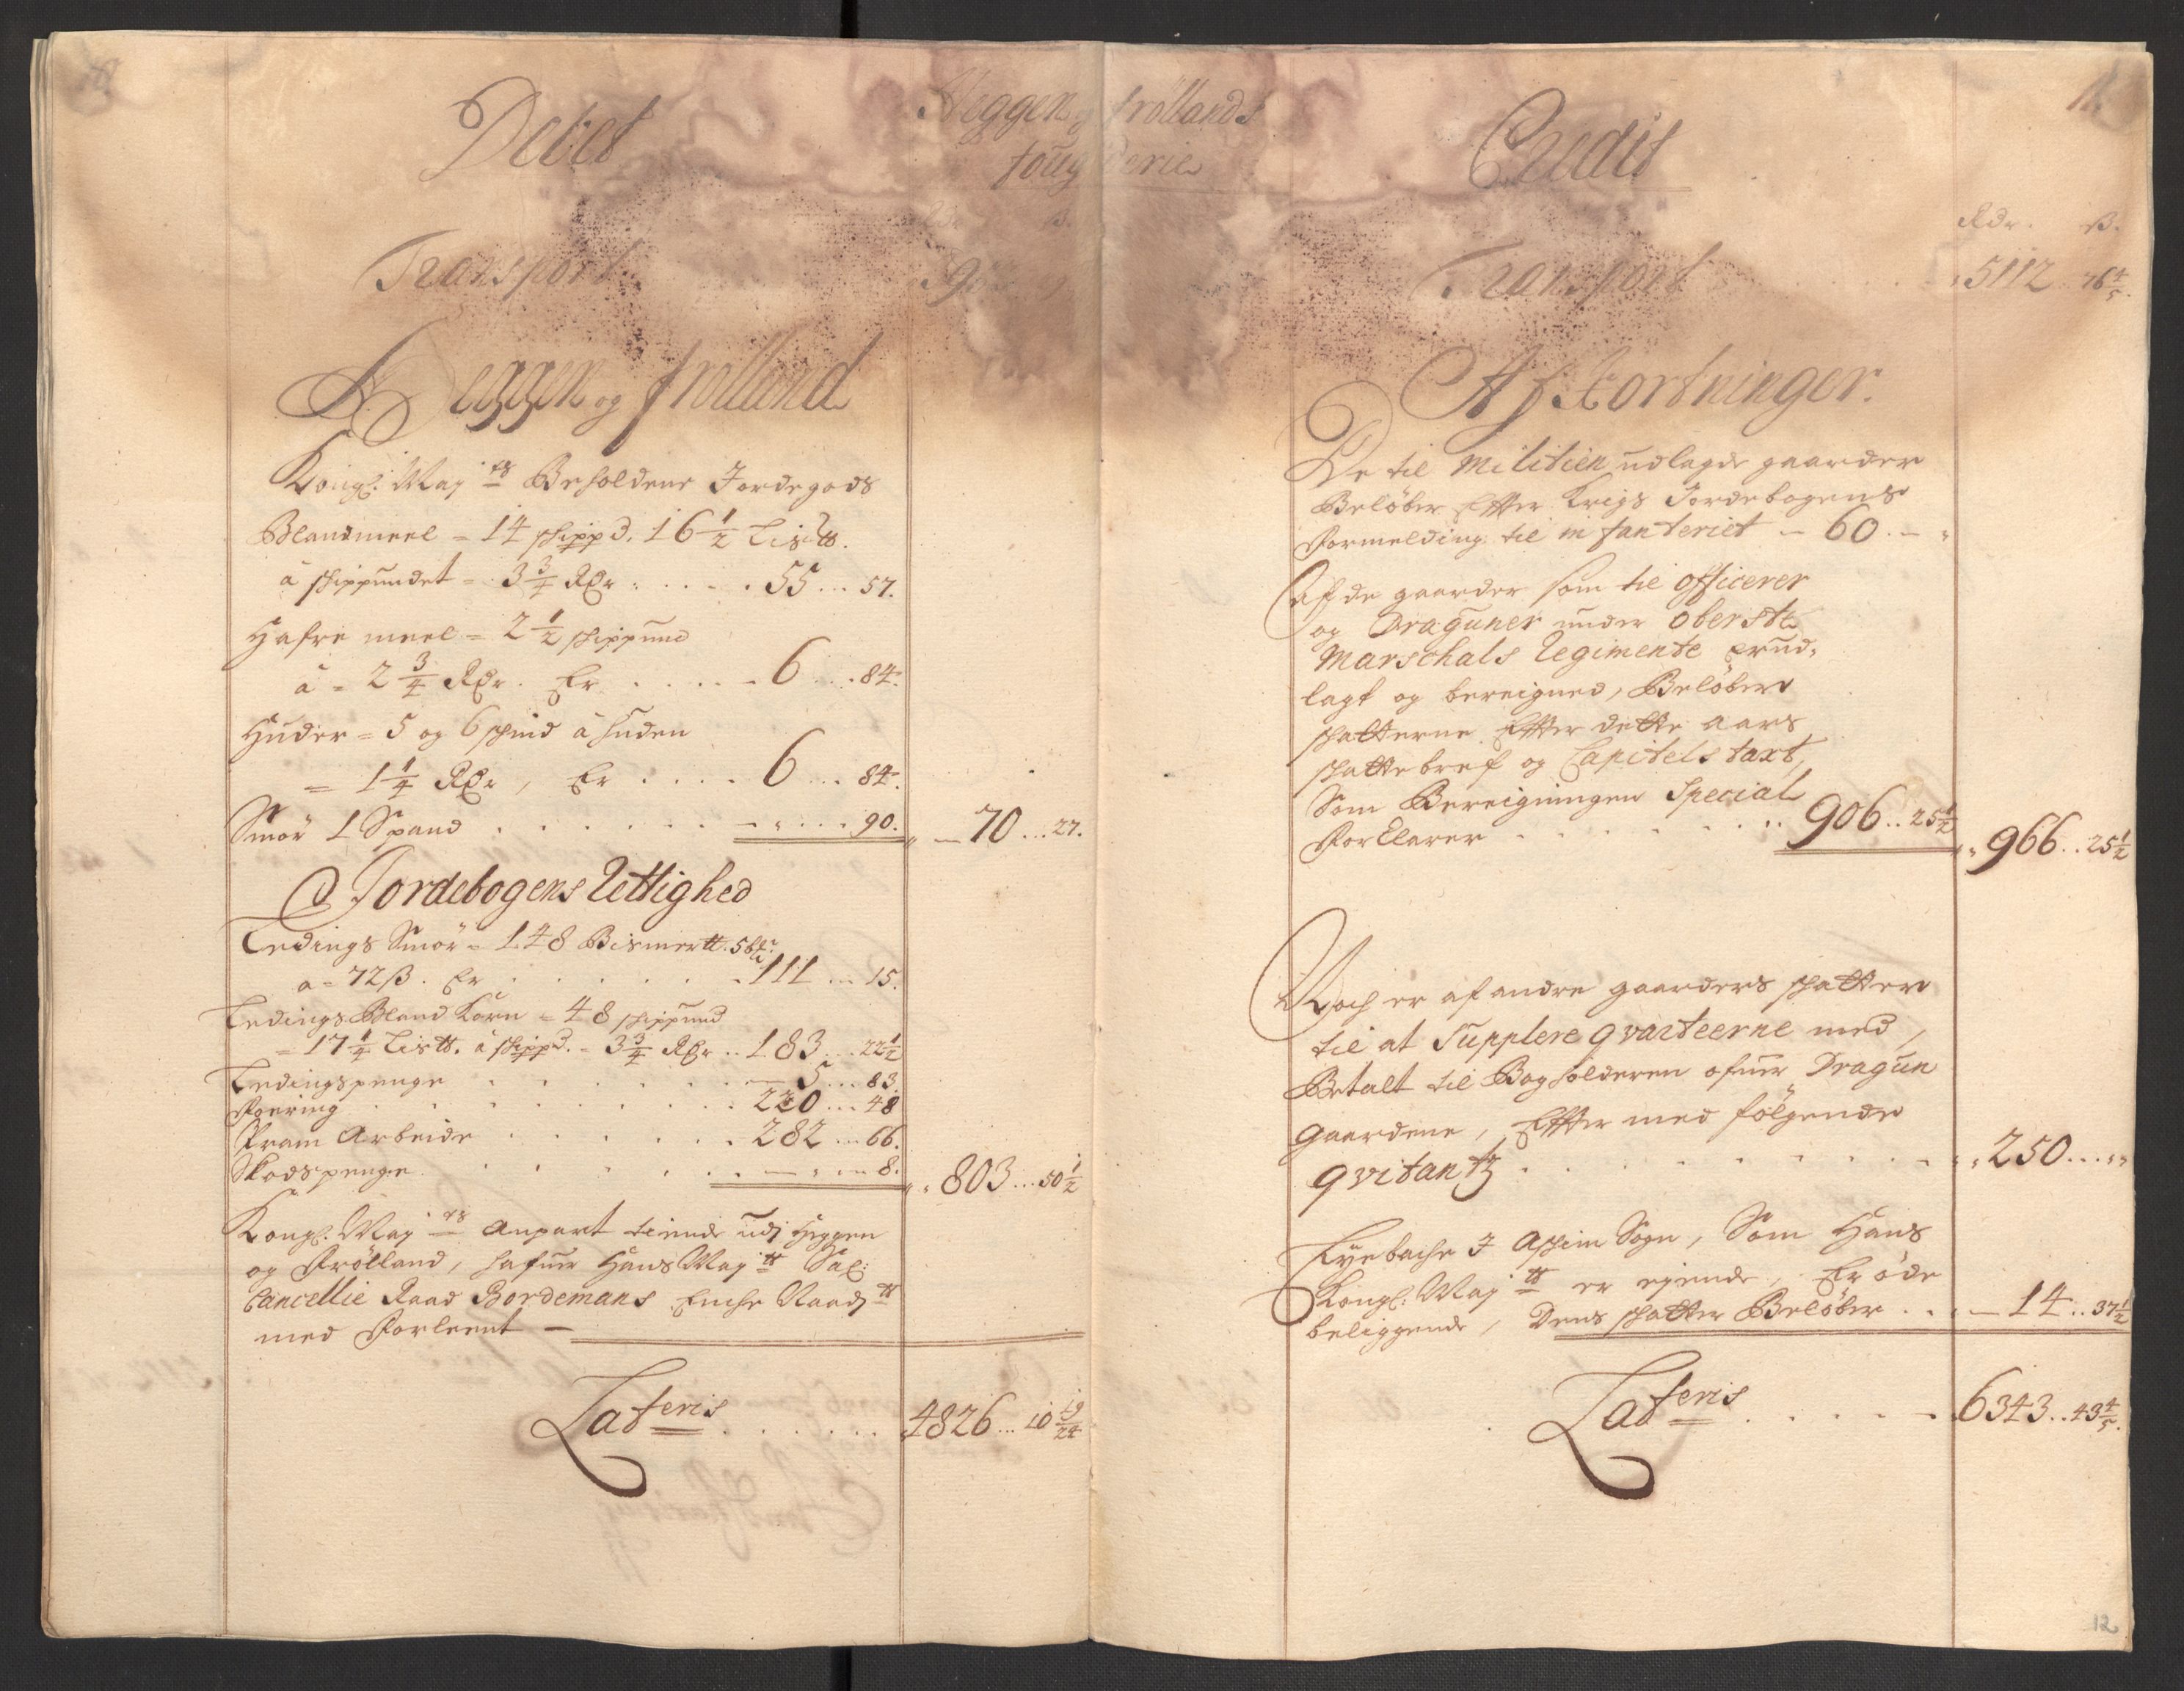 Debet
Heggen og frøllands
fougderie
Transport
Heggen og frølland
Kongl: May.ts Beholdene Jordegods
Blandmeel = 14 skippd. 16 1/2 Lis℔.
â skippundet = 3 3/4 Rdr. . . . . 55 . . . 57.
Hafre meel = 2 1/2 skippund
â = 2 3/4 Rdr. Er . . . . . 6 . . . 84.
Huder = 5 og 6 skind â huden
= 1 1/4 Rdr, Er . . . . 6 . . . 84.
Smör 1 Spand . . . . . . . . . . 90. — 70 . . . 27.
Jordebogens Rettighed
Ledings Smör = 148 Bismer℔.
a = 72 β. Er . . . . . . . 111 . . . 15.
Ledings Bland Korn = 48 skippund
= 17 1/4 Lis℔. â skippd. = 3 3/4 Rdr . . 183 . . . 22 1/2
Ledingspenge . . . . . . . 5 . . . 83.
Foering . . . . . . . 220 . . . 48
Pram Arbeide . . . . . . 282 . . . 66.
Skodspenge . . . . . . . — . . . 8. 803 . . . 50 1/2
Kongl. May.ts Anpart tiende udj Heggen
og Frölland, hafuer Hans May.tt Sal:
Cancellie Raad Bordemans Enche Naadt
med Forleent —
Lateris . . . . . . 4826 . . . 10 19/24
Credit
Rdr. β.
Transport . . . . . 5112 76 4/5.
Af Kortninger.
De til Militien udlagde gaarder
Belöber Efter Krigs Jordebogens
Formelding til infanteriet — 60. —
Af de gaarder som til officerer
og Draguner under Oberste
Marschals Regimente er ud-
lagt og bereigned, Belöber
skatterne Efter dette aars
skattebref og Capitels taxt,
Som Bereigningen Special
Forklarer . . . . . . . . 906 . . 25 1/2 966 . . 25 1/2
Noch er af andre gaarders skatter
til at Supplere qvarteerne med,
Betalt til Bogholderen ofuer Dragun
Gaardene, Efter med fölgende
qvitantz . . . . . . . . . 250 . . . "
Lyebache J Aschim Sogn, Som Hans
Kongl: May.tt er ejende, Er öde
beliggende, Dens skatter Belöber . . — 14 . . 37 1/2
Lateris . . . . . 6343 . . 43 4/5.
12